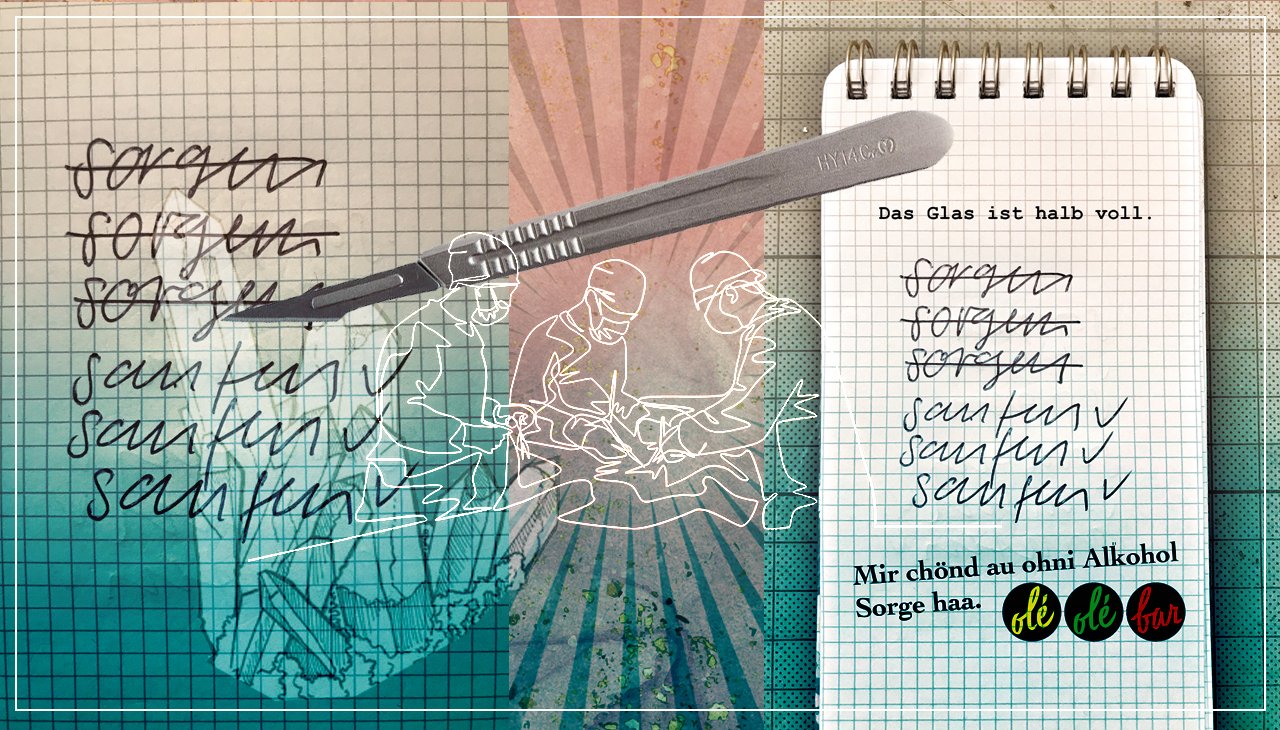 sorgen
sorgen
sorgen
saufen ✓
saufen ✓
saufen ✓
Das Glas ist halb voll.
sorgen
sorgen
sorgen
saufen ✓
saufen ✓
saufen ✓
Mir chönd au ohni Alkohol
Sorge haa.
olé olé bar